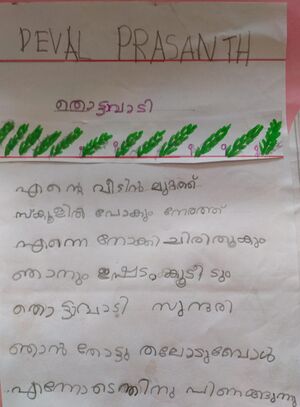 DEVAL PRASANTH
തൊട്ടാവാടി
എന്റെ വീടിൻ മുറ്റത്ത്
സ്കൂളിൽ പോകും നേരത്ത്
എന്നെ നോക്കി ചിരിതൂകും
ഞാനും ഇഷ്ടം കൂടീടും
തൊട്ടാവാടി സുന്ദരി
ഞാൻ തോട്ടു തലോടുമ്പോൾ
എന്നോടെന്തിനു പിണങ്ങുന്നു